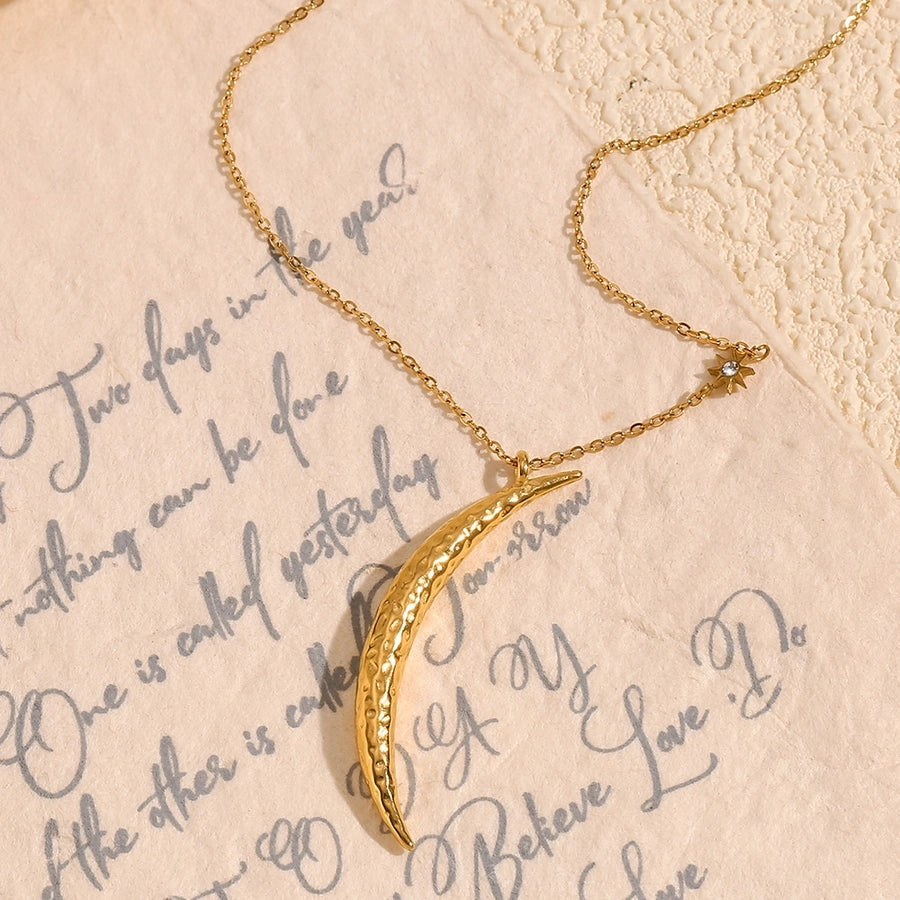 Two days in the year
nothing can be done
One is called yesterday
the other is called Tomorrow
DAY
Love Do
the
Believe